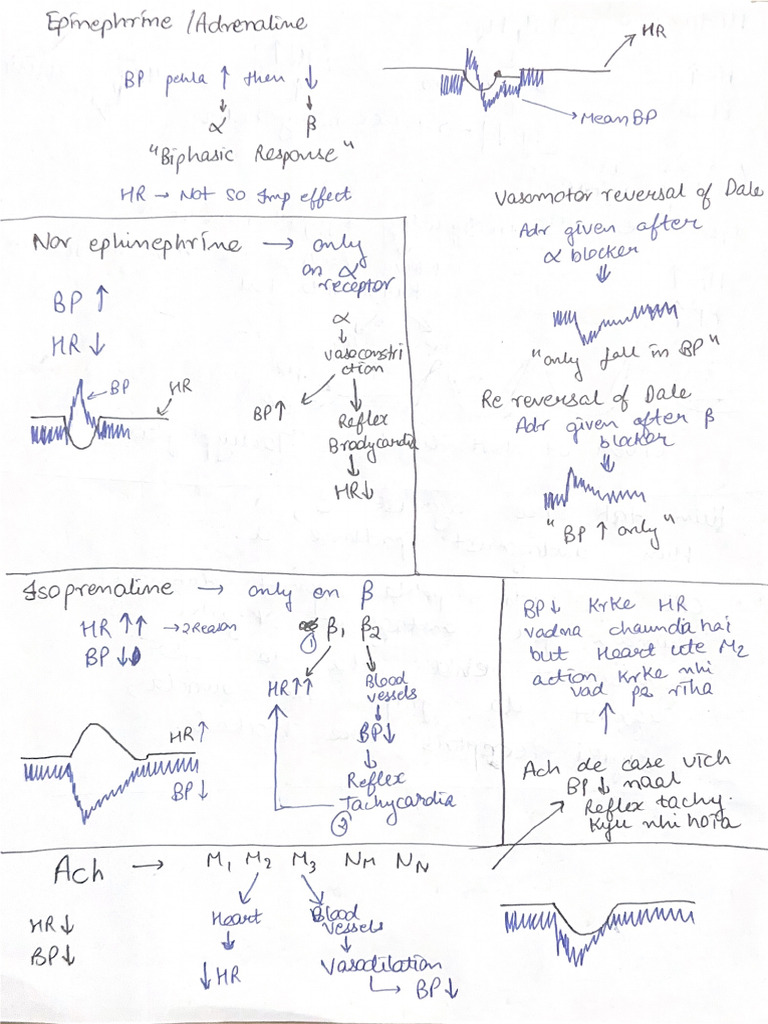 Epinephrine / Adrenaline
BP pehla ↑ then ↓
α β
"Biphasic Response"
HR → Not so Imp effect
HR
Mean BP
Vasomotor reversal of Dale
Adr given after
α blocker
"only fall in BP"
Re reversal of Dale
Adr given after β
blocker
"BP ↑ only"
Nor ephinephrine → only
on α
receptor
BP ↑
HR ↓
BP
HR
α
↓
vasoconstri
ction
BP ↑
Reflex
Bradycardia
↓
HR↓
Isoprenaline → only on β
HR ↑↑ → 2 Reason
BP ↓↓
① β1 β2
HR↑↑
Blood
vessels
↓
BP↓
↓
Reflex
tachycardia
②
HR ↑
BP ↓
BP↓ krke HR
vadna chaunda hai
but Heart ute M2
action krke nhi
vad pa riha
↑
Ach de case vich
BP ↓ naal
Reflex tachy.
Kyu nhi hoia
Ach → M1 M2 M3 NM NN
HR↓
BP↓
Heart
↓
↓HR
Blood
vessels
↓
Vasodilation
BP↓